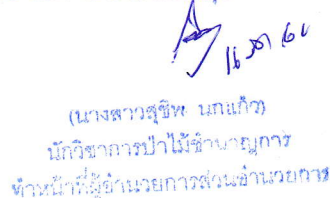 (นางสาวสุชีพ นกแก้ว)
นักวิชาการป่าไม้ชำนาญการ
ทำหน้าที่ผู้อำนวยการส่วนอำนวยการ